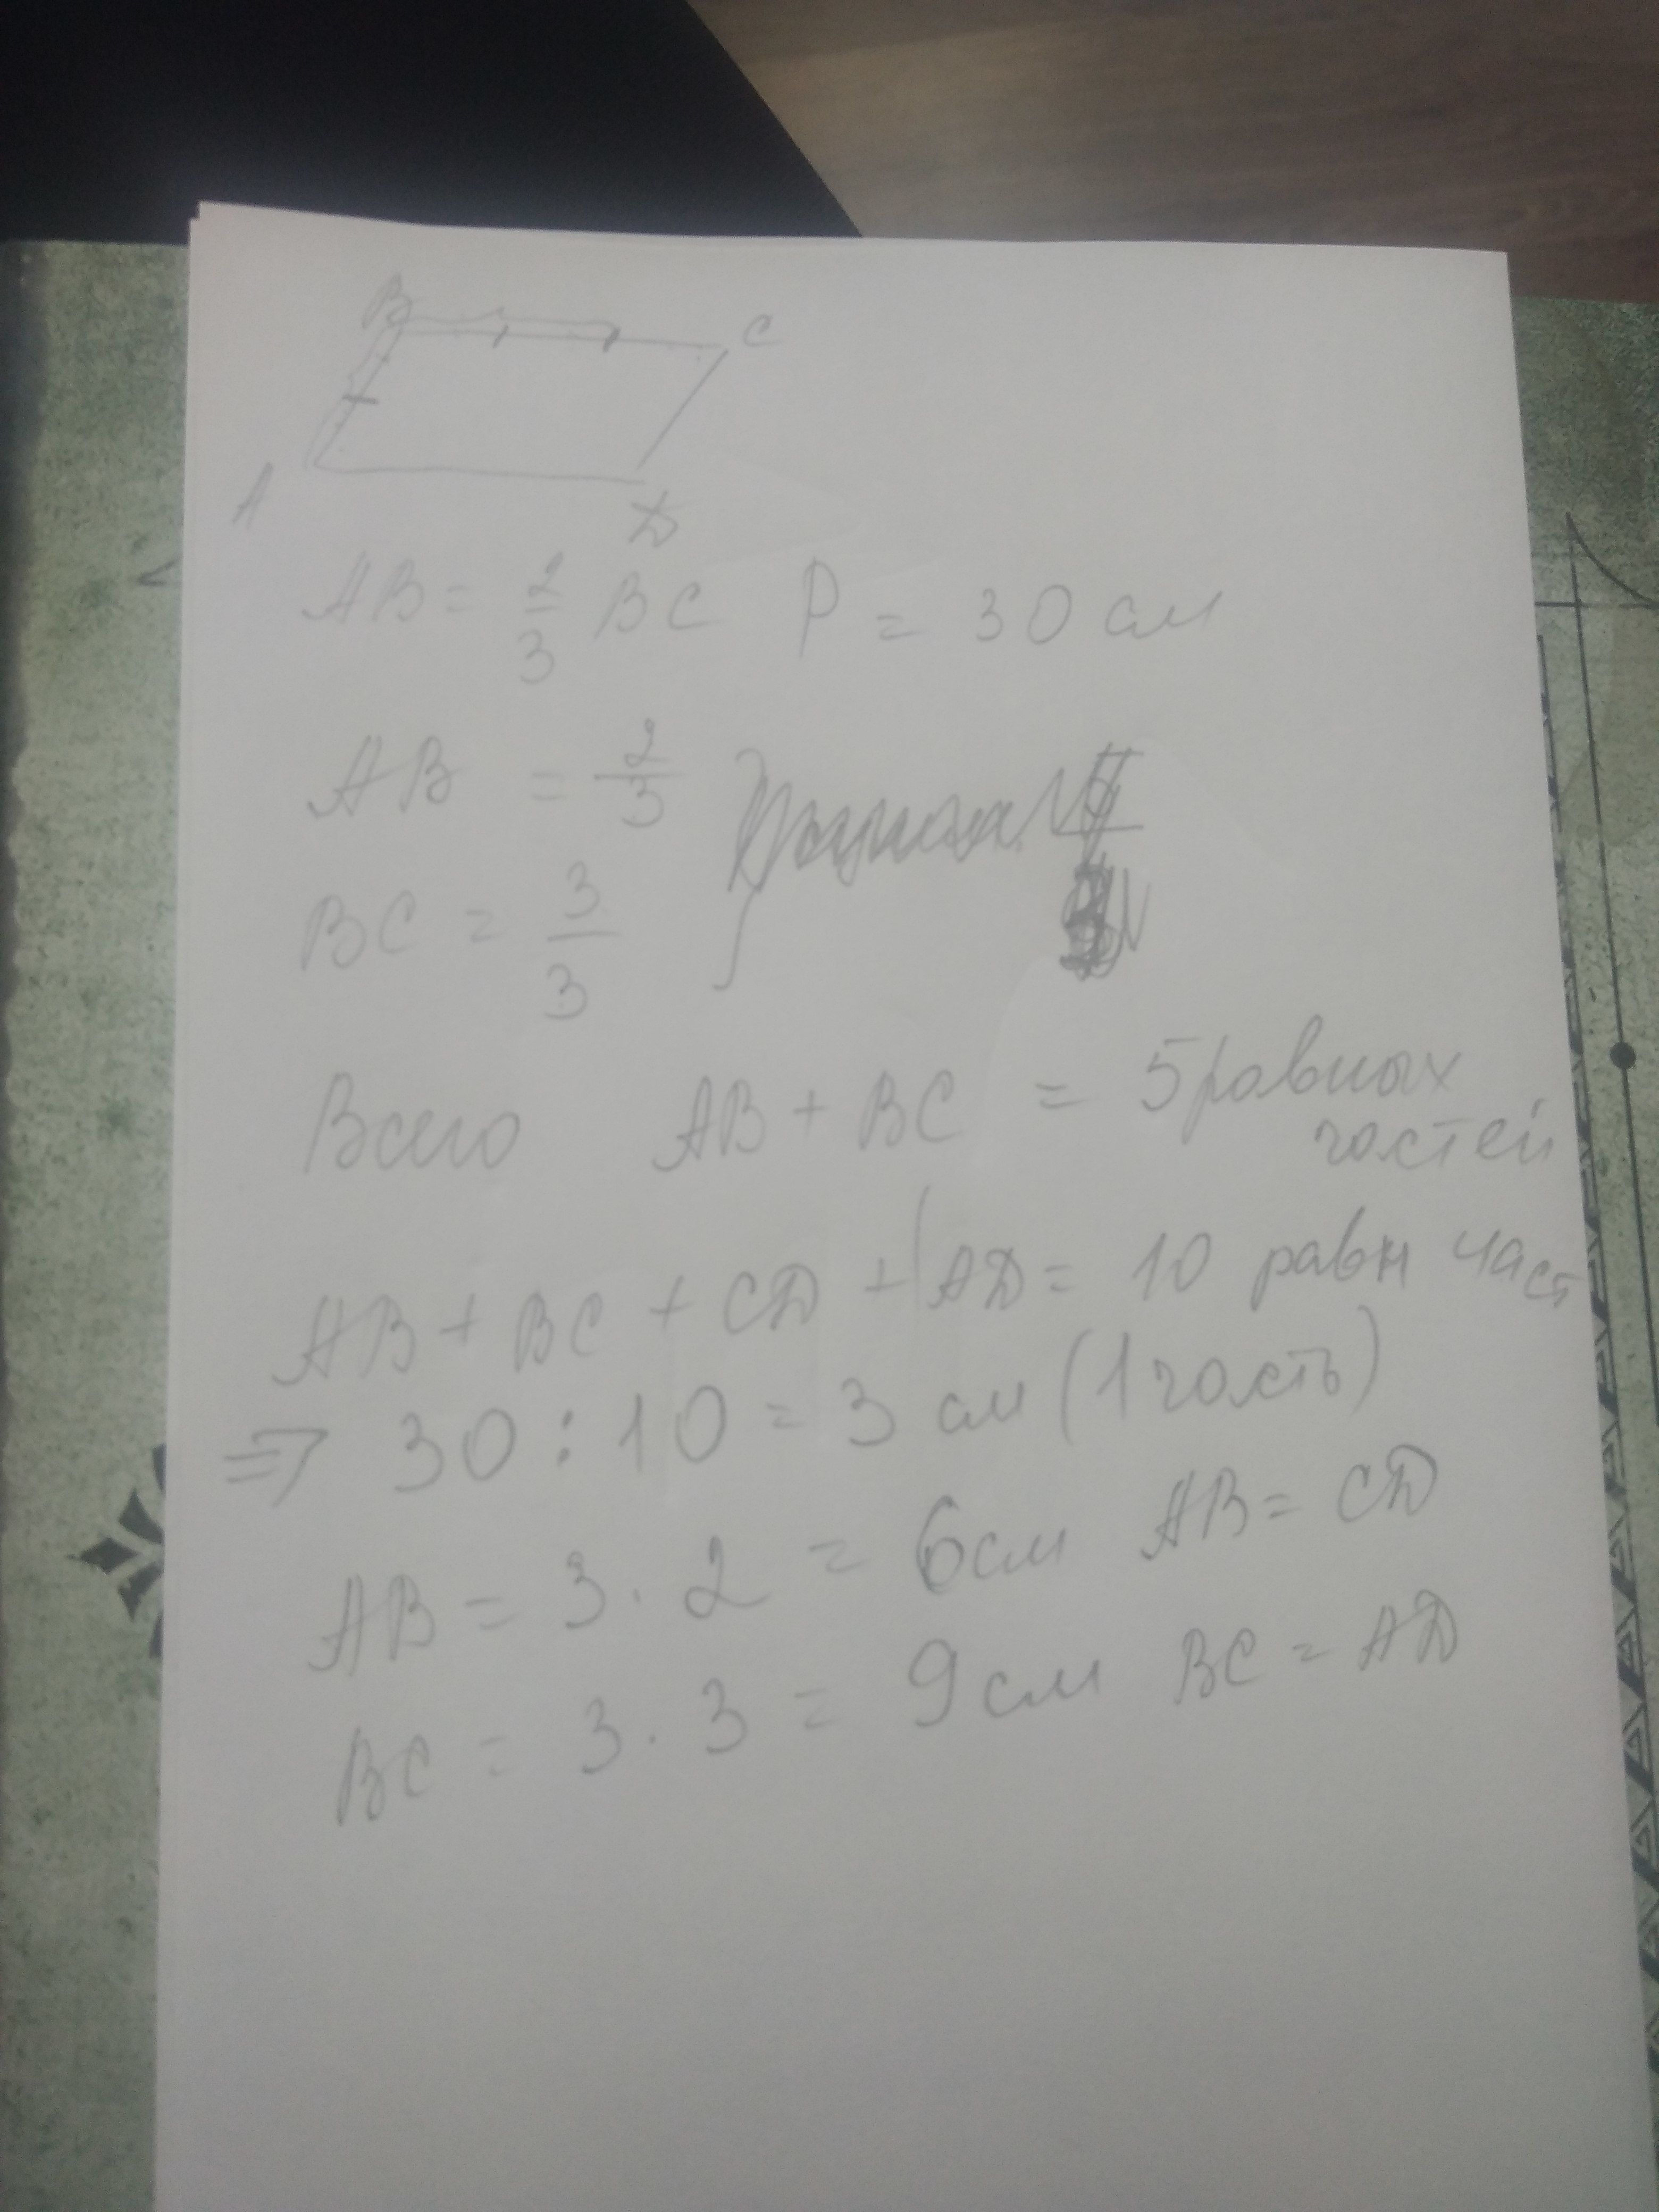 B C
A D
AB = 2/3 BC P = 30 см
AB = 2/3
BC = 3/3
Всего AB + BC = 5 равных
частей
AB + BC + CD + AD = 10 равн част
⇒ 30 : 10 = 3 см (1 часть)
AB = 3 · 2 = 6 см AB = CD
BC = 3 · 3 = 9 см BC = AD